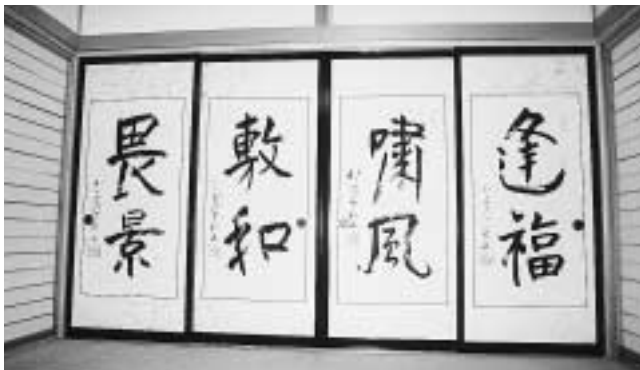 逢福
嘯風
敷和
畏景